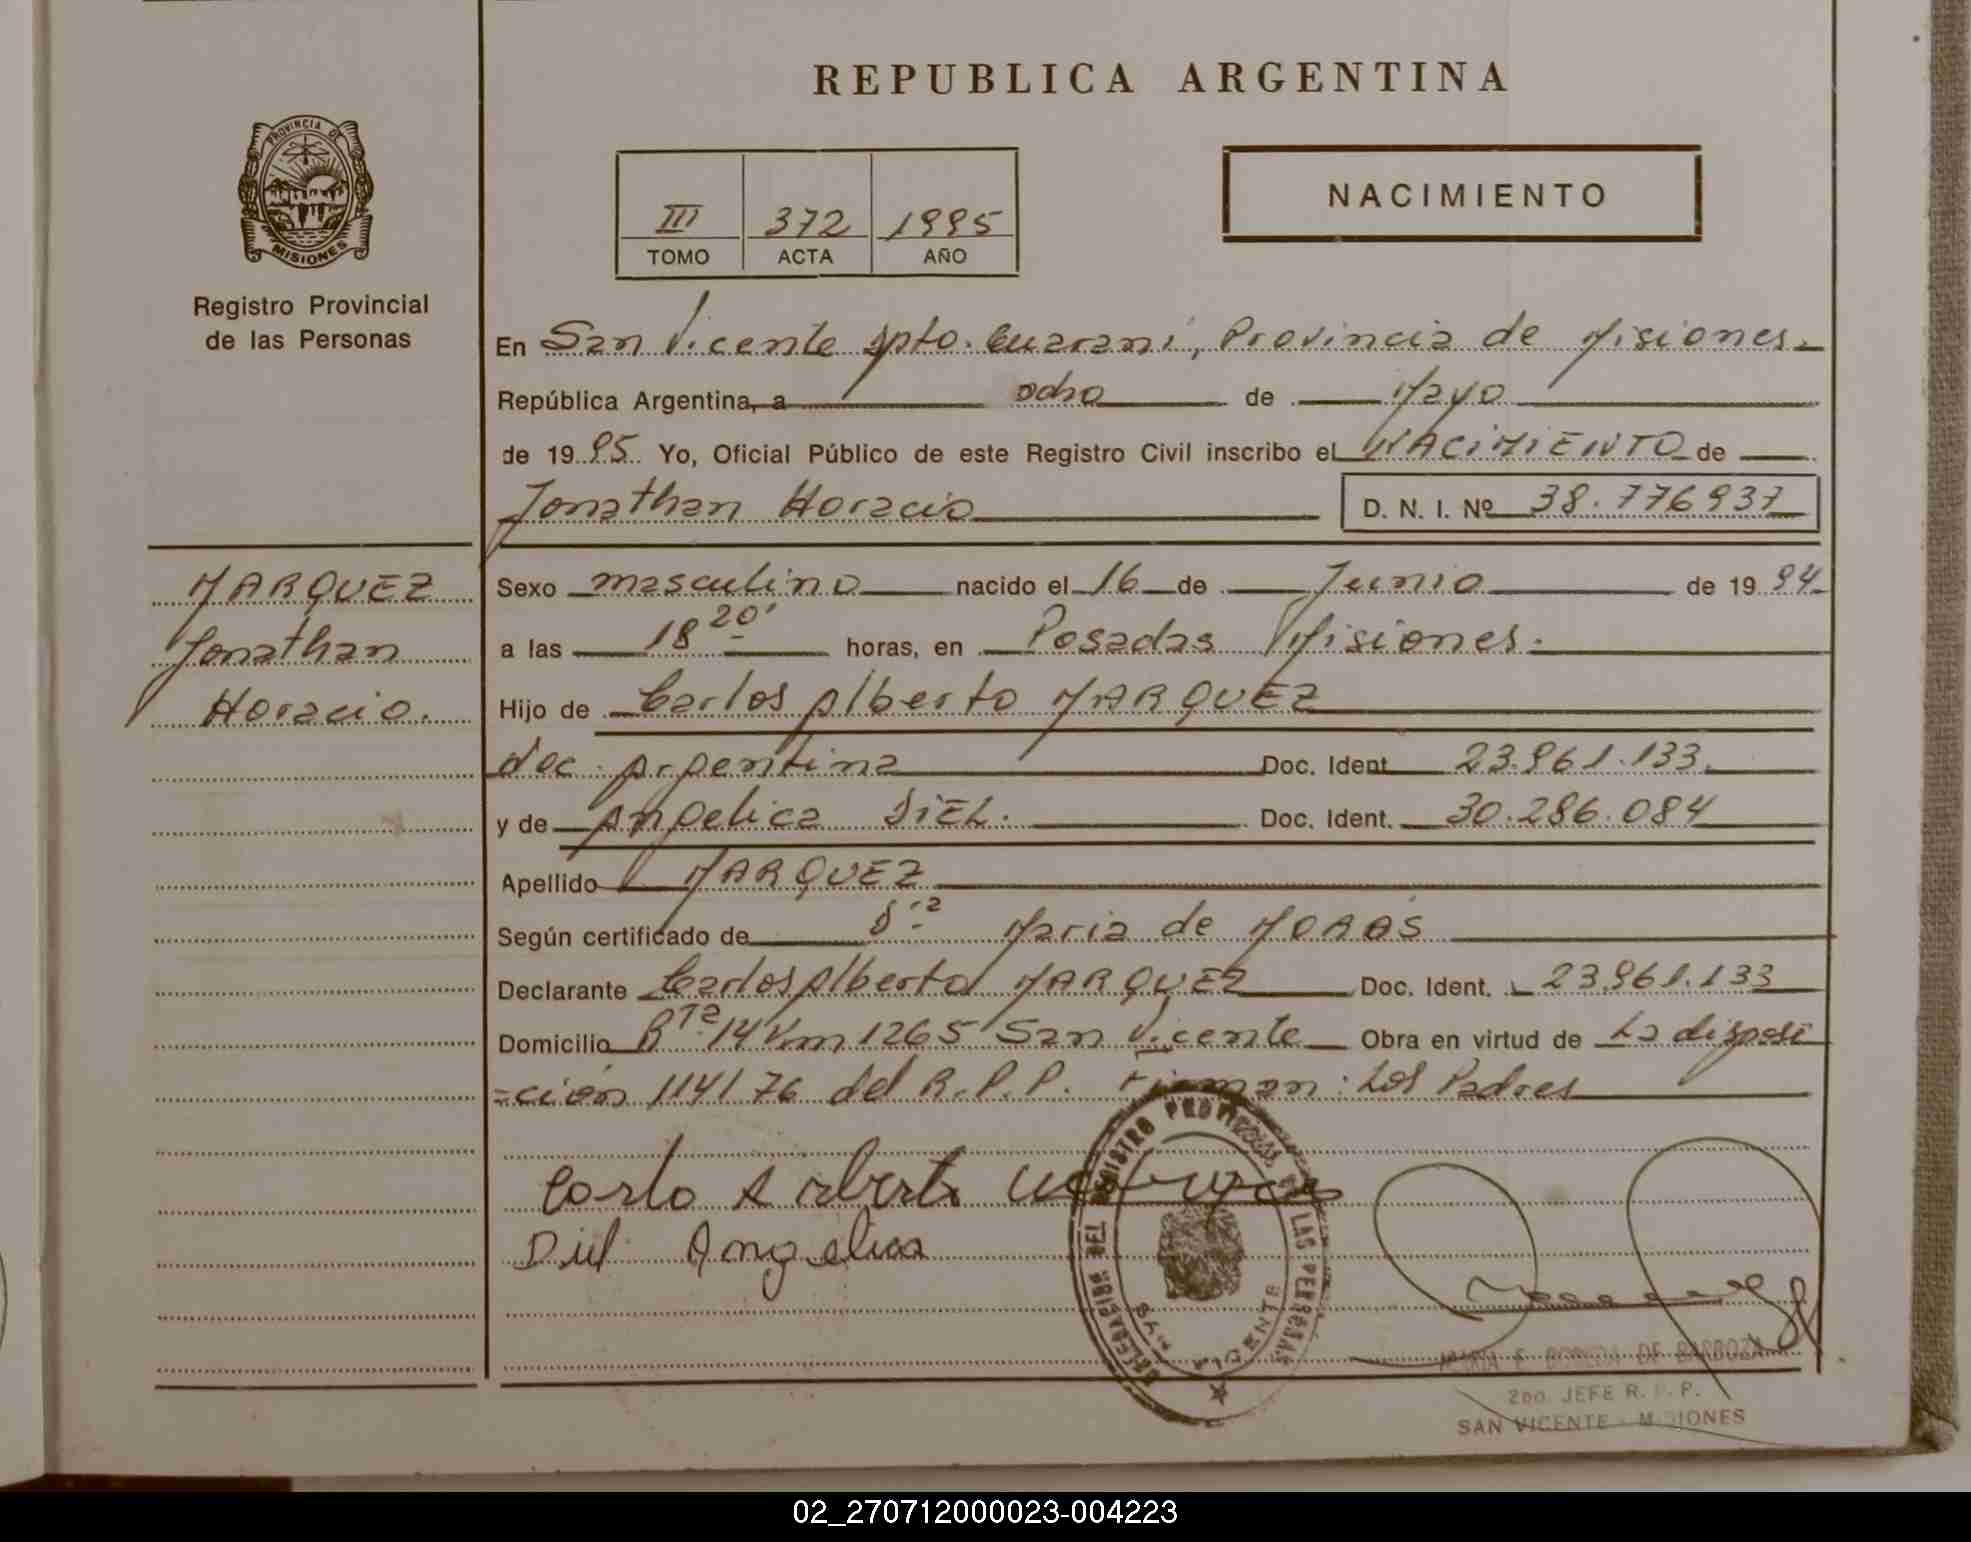 REPUBLICA ARGENTINA
PROVINCIA DE
MISIONES
Registro Provincial
de las Personas
III 372 1995
TOMO ACTA AÑO
NACIMIENTO
En San Vicente Dpto. Guaraní, Provincia de Misiones.
República Argentina, a ocho de Mayo
de 1995 Yo, Oficial Público de este Registro Civil inscribo el NACIMIENTO de
Jonathan Horacio D. N. I. Nº 38.776937
MARQUEZ
Jonathan
Horacio.
Sexo masculino nacido el 16 de Junio de 1994
a las 18 20' horas, en Posadas Misiones.
Hijo de Carlos Alberto MARQUEZ
doc. Argentina Doc. Ident. 23.961.133.
y de Angelica DIEL. Doc. Ident. 30.286.084
Apellido MARQUEZ
Según certificado de Maria de
Declarante Carlos Alberto MARQUEZ Doc. Ident. 23.961.133
Domicilio Rta 14 Km 1265 San Vicente Obra en virtud de La disposi
=ción 1141 76 del R.P.P. Firman: Los Padres
Carlo Alberto
Diel Angelica
DELEGACION DEL REGISTRO PROVINCIAL DE LAS PERSONAS
SAN VICENTE
DE BARBOZA
2do. JEFE R. P. P.
SAN VICENTE - MISIONES
02_270712000023-004223